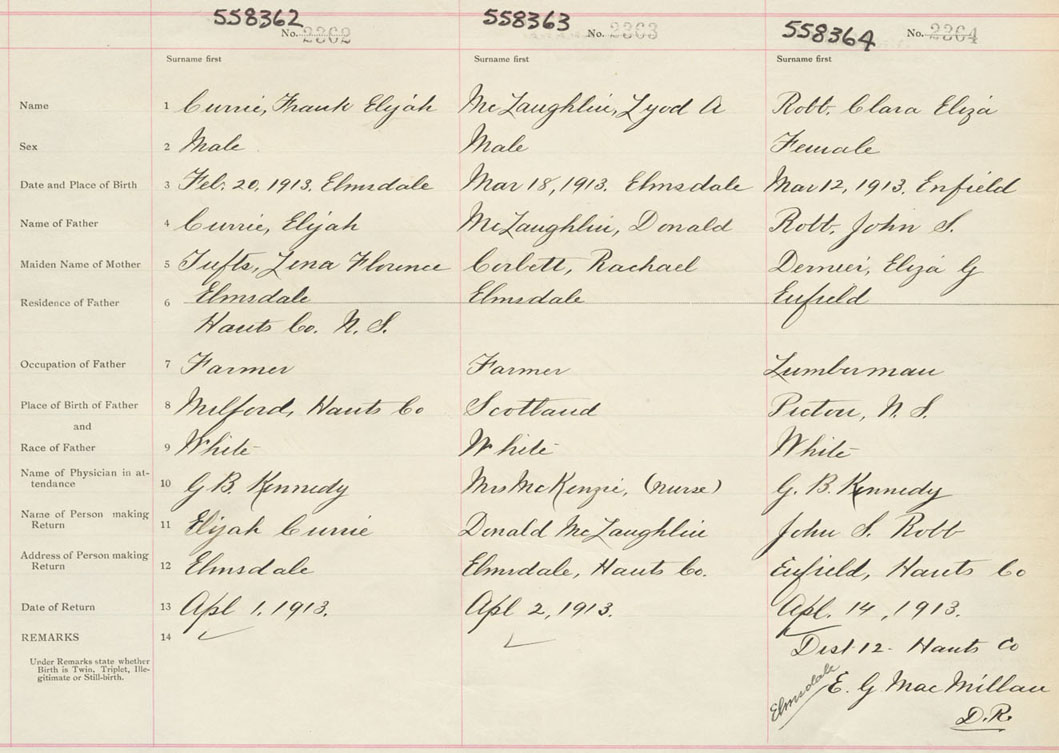 558362 558363 558364
No. 2362 No. 2363 No. 2364
Surname first Surname first Surname first
Name 1 Currie, Frank Elijah McLaughlin, Lyod A Robb, Clara Eliza
Sex 2 Male Male Female
Date and Place of Birth 3 Feb. 20, 1913. Elmsdale Mar 18, 1913. Elmsdale Mar 12, 1913. Enfield
Name of Father 4 Currie, Elijah McLaughlin, Donald Robb, John S.
Maiden Name of Mother 5 Tufts, Lena Florence Corbett, Rachael Eliza G
Residence of Father 6 Elmsdale Elmsdale Enfield
Hants Co. N. S.
Occupation of Father 7 Farmer Farmer Lumberman
Place of Birth of Father 8 Milford, Hants Co Scotland Pictou, N. S.
and
Race of Father 9 White White White
Name of Physician in at-
tendance 10 G B. Kennedy Mrs McKenzie, (nurse) G. B. Kennedy
Name of Person making
Return 11 Elijah Currie Donald McLaughlin John S. Robb
Address of Person making
Return 12 Elmsdale Elmsdale, Hants Co. Enfield, Hants Co
Date of Return 13 Apl 1, 1913. Apl 2, 1913. Apl. 14, 1913.
REMARKS 14
Under Remarks state whether
Birth is Twin, Triplet, Ille-
gitimate or Still-birth.
Dist 12. Hants Co
Elmsdale E. G MacMillan
D.R.